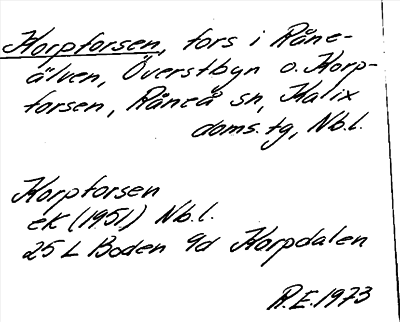 Korpforsen, fors i Råne-
älven, Överstbyn o. Korp-
forsen, Råneå sn, Kalix
doms.tg, Nb.l.
Korpforsen
ek (1951) Nb.l.
25 L Boden 9d Korpdalen
R.E. 1973